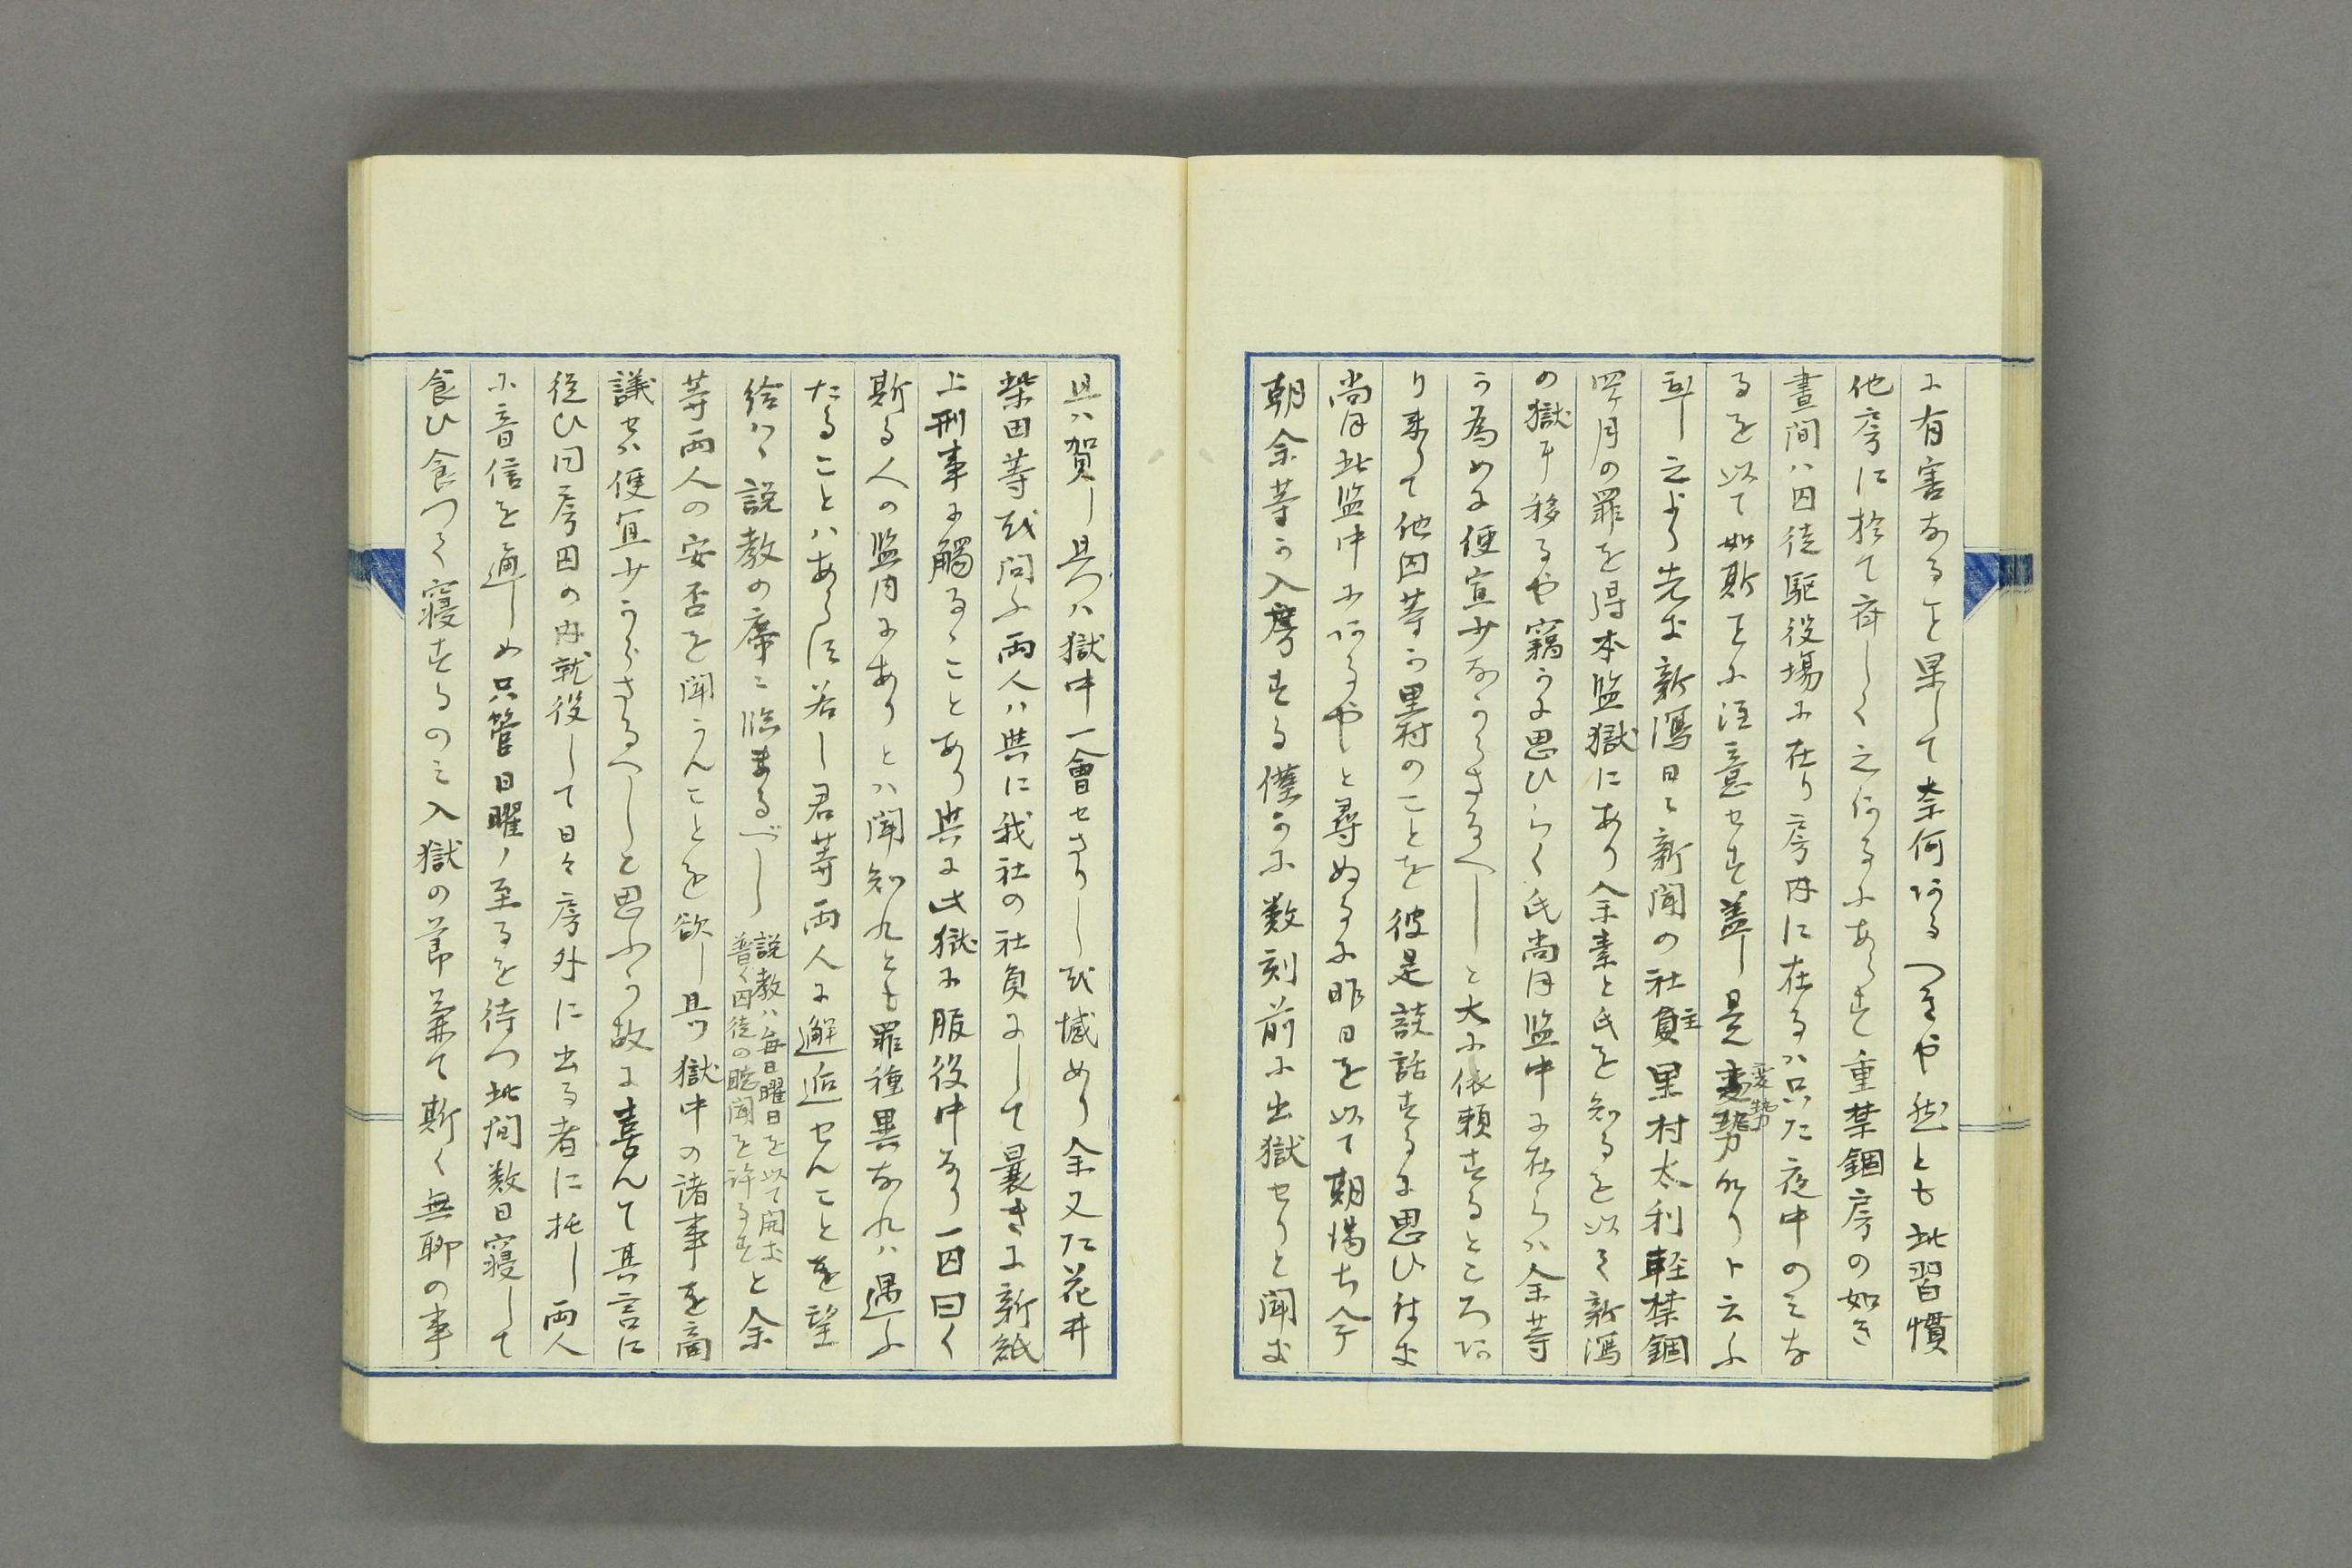 に有害なると果して奈何ばかりそや然とも此習慣
他房に於て斉しく之あるにあらす重禁錮房の如き
昼間ハ囚徒駆役場に在り房内に在るハ只た夜中のミな
るを以て如斯ことに注意せす蓋し是変勢なりト云ふ
之より先き新潟日々新聞の社主里村太利軽禁錮
四ケ月の罪を得本監獄にあり余素と氏を知るを以て新潟
の獄に移るや窃かに思ひらく氏尚ほ監中に在らハ余等
か為めに便宜少なからさるへしと大に依頼するところあ
り来りて他囚等か里村のことを彼是談話するに思ひ付き
尚ほ此監中にあるやと尋ぬるに昨日を以て期満ち今
朝余等か入房する僅かに数刻前に出獄せりと聞き
且ハ賀し且つハ獄中一会せさりしを憾めり余又た花井
柴田等を問ふ両人ハ共に我社の社員にして曩きに新紙
上刑事に触るゝことあり共に此獄に服役中なり一囚曰く
斯る人の監内にありとハ聞知れとも罪種異なれハ遇ふ
たることハあらす若し君等両人に邂逅せんことを望
給はゝ説教の席に臨まるべし
説教ハ毎日曜日を以て開き
普く囚徒の聴聞を許るす
と余
等両人の安否を聞かんことを欲し且つ獄中の諸事を商
議せハ便宜少からさるへしと思ふか故に喜んて其言に
従ひ同房囚の内就役して日々房外に出る者に托し両人
に音信を通しめ只管日曜ノ至るを待つ此間数日寝して
食ひ食つて寝するのミ入獄の節兼て斯く無聊の事